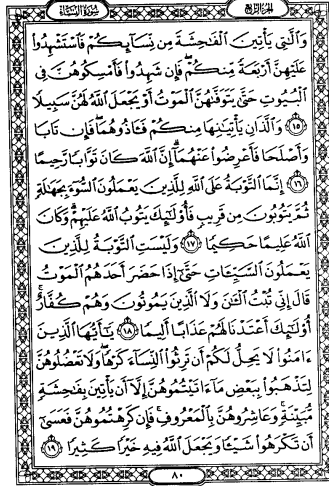 سُورَةُ النِّسَاءِ الجُزْءُ الرَّابِعُ
وَٱلَّٰتِى يَأْتِينَ ٱلْفَٰحِشَةَ مِن نِّسَآئِكُمْ فَٱسْتَشْهِدُوا۟
عَلَيْهِنَّ أَرْبَعَةً مِّنكُمْ ۖ فَإِن شَهِدُوا۟ فَأَمْسِكُوهُنَّ فِى
ٱلْبُيُوتِ حَتَّىٰ يَتَوَفَّىٰهُنَّ ٱلْمَوْتُ أَوْ يَجْعَلَ ٱللَّهُ لَهُنَّ سَبِيلًا
١٥ وَٱلَّذَانِ يَأْتِيَٰنِهَا مِنكُمْ فَـَٔاذُوهُمَا ۖ فَإِن تَابَا
وَأَصْلَحَا فَأَعْرِضُوا۟ عَنْهُمَآ ۗ إِنَّ ٱللَّهَ كَانَ تَوَّابًا رَّحِيمًا
١٦ إِنَّمَا ٱلتَّوْبَةُ عَلَى ٱللَّهِ لِلَّذِينَ يَعْمَلُونَ ٱلسُّوٓءَ بِجَهَٰلَةٍ
ثُمَّ يَتُوبُونَ مِن قَرِيبٍ فَأُو۟لَٰٓئِكَ يَتُوبُ ٱللَّهُ عَلَيْهِمْ ۗ وَكَانَ
ٱللَّهُ عَلِيمًا حَكِيمًا ١٧ وَلَيْسَتِ ٱلتَّوْبَةُ لِلَّذِينَ
يَعْمَلُونَ ٱلسَّيِّـَٔاتِ حَتَّىٰٓ إِذَا حَضَرَ أَحَدَهُمُ ٱلْمَوْتُ
قَالَ إِنِّى تُبْتُ ٱلْـَٰٔنَ وَلَا ٱلَّذِينَ يَمُوتُونَ وَهُمْ كُفَّارٌ ۚ
أُو۟لَٰٓئِكَ أَعْتَدْنَا لَهُمْ عَذَابًا أَلِيمًا ١٨ يَٰٓأَيُّهَا ٱلَّذِينَ
ءَامَنُوا۟ لَا يَحِلُّ لَكُمْ أَن تَرِثُوا۟ ٱلنِّسَآءَ كَرْهًا ۖ وَلَا تَعْضُلُوهُنَّ
لِتَذْهَبُوا۟ بِبَعْضِ مَآ ءَاتَيْتُمُوهُنَّ إِلَّآ أَن يَأْتِينَ بِفَٰحِشَةٍ
مُّبَيِّنَةٍ ۚ وَعَاشِرُوهُنَّ بِٱلْمَعْرُوفِ ۚ فَإِن كَرِهْتُمُوهُنَّ فَعَسَىٰٓ
أَن تَكْرَهُوا۟ شَيْـًٔا وَيَجْعَلَ ٱللَّهُ فِيهِ خَيْرًا كَثِيرًا ١٩
٨٠